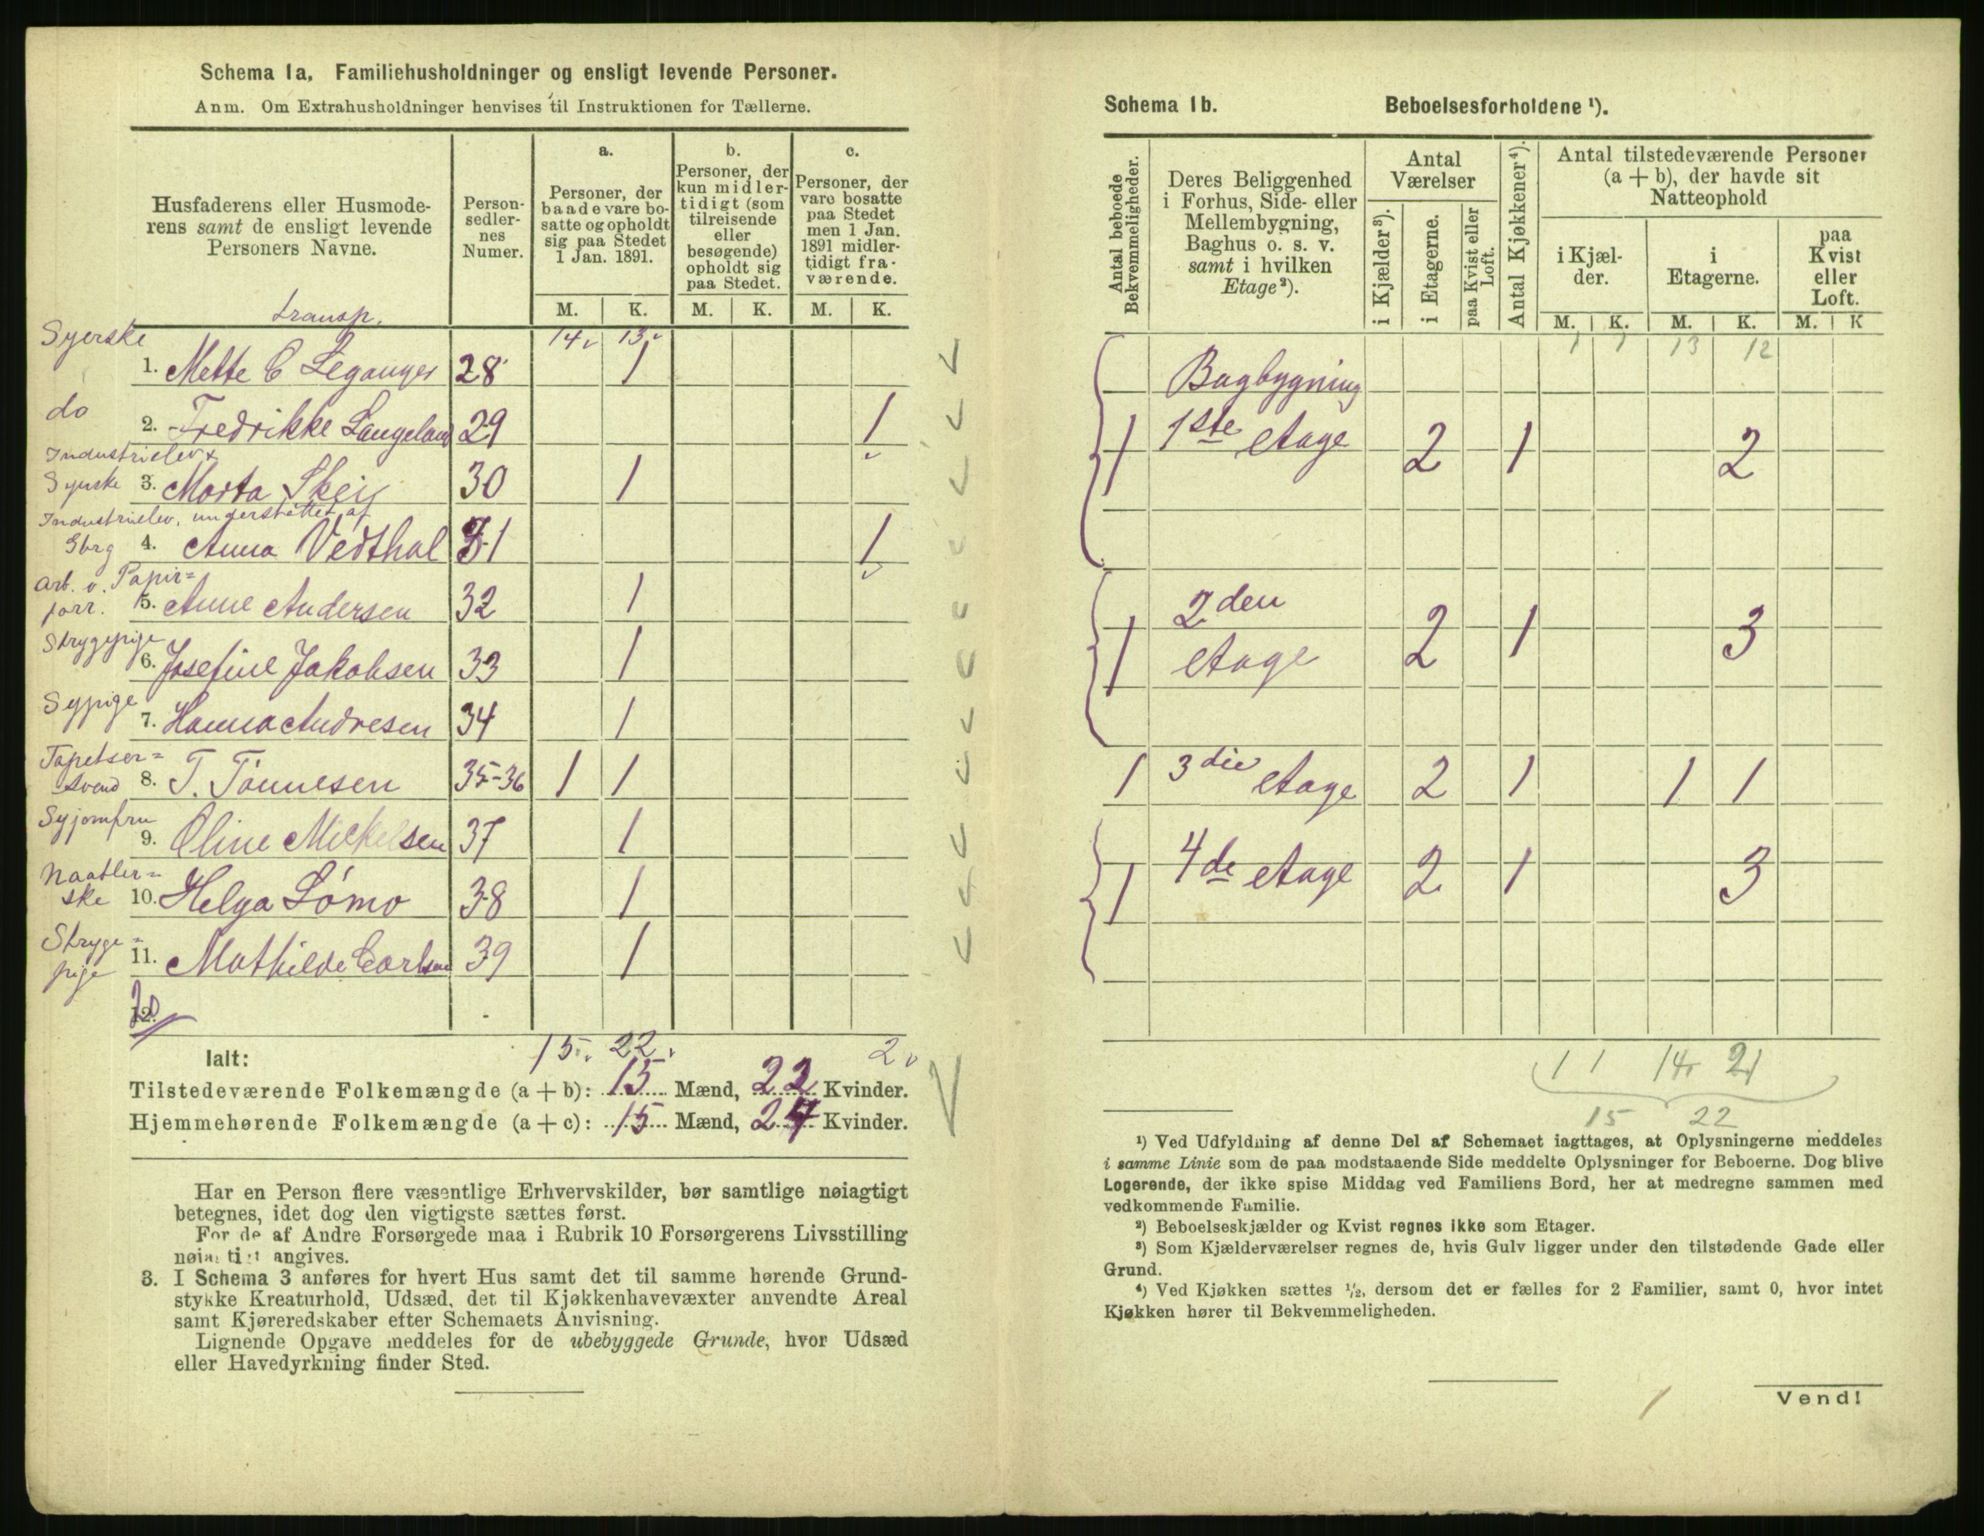 Schema 1a. Familiehusholdninger og ensligt levende Personer.
Anm. Om Extrahusholdninger henvises til Instruktionen for Tællerne.
Husfaderens eller Husmode-
rens samt de ensligt levende
Personers Navne.
Person-
sedler-
nes
Numer.
a.
Personer, der
baade vare bo-
satte og opholdt
sig paa Stedet
1 Jan. 1891.
b.
Personer, der
kun midler-
tidigt (som
tilreisende
eller
besøgende)
opholdt sig
paa Stedet.
c.
Personer, der
vare bosatte
paa Stedet
men 1 Jan.
1891 midler-
tidigt fra-
værende.
M. K. M. K. M. K.
transp. 14 13
Syerske
1. Mette C Leganger 28 1
do
2. Fredrikke Langeland 29 1
Industrielev &
Syerske 3. Marta Skeij 30 1
Industrielev, understöttet af
Gbrg 4. Anna Vedthal 31 1
Arb. v. Papir=
forr. 5. Anne Andersen 32 1
Strygepige
6. Josefine Jakobsen 33 1
Sypige
7. Hanna Andresen 34 1
Tapetser=
svend 8. T. Tönnesen 35-36 1 1
Syjomfru
9. Oline Mickelsen 37 1
Naatler=
ske 10. Helga Lömo 38 1
Stryge=
pige 11. Mathilde Carlsen 39 1
12.
Ialt: 15 22 2
Tilstedeværende Folkemængde (a + b): 15 Mænd, 22 Kvinder.
Hjemmehørende Folkemængde (a + c): 15 Mænd, 24 Kvinder.
Har en Person flere væsentlige Erhvervskilder, bør samtlige nøiagtigt
betegnes, idet dog den vigtigste sættes først.
For de af Andre Forsørgede maa i Rubrik 10 Forsørgerens Livsstilling
nøiagtigt angives.
3. I Schema 3 anføres for hvert Hus samt det til samme hørende Grund-
stykke Kreaturhold, Udsæd, det til Kjøkkenhavevæxter anvendte Areal
samt Kjøreredskaber efter Schemaets Anvisning.
Lignende Opgave meddeles for de ubebyggede Grunde, hvor Udsæd
eller Havedyrkning finder Sted.
Schema 1b. Beboelsesforholdene ¹).
Antal beboede
Bekvemmeligheder.
Deres Beliggenhed
i Forhus, Side- eller
Mellembygning,
Baghus o. s. v.
samt i hvilken
Etage²).
Antal
Værelser
i Kjælder³).
i Etagerne.
paa Kvist eller
Loft.
Antal Kjøkkener⁴).
Antal tilstedeværende Personer
(a + b), der havde sit
Natteophold
i Kjæl-
der.
i
Etagerne.
paa
Kvist
eller
Loft.
M. K. M. K. M. K
1 1 13 12
Bagbygning
1 1ste etage 2 1 2
1 2den
etage 2 1 3
1 3die etage 2 1 1 1
1 4de etage 2 1 3
1 1 14 21
15 22
¹) Ved Udfyldning af denne Del af Schemaet iagttages, at Oplysningerne meddeles
i samme Linie som de paa modstaaende Side meddelte Oplysninger for Beboerne. Dog blive
Logerende, der ikke spise Middag ved Familiens Bord, her at medregne sammen med
vedkommende Familie.
²) Beboelseskjælder og Kvist regnes ikke som Etager.
³) Som Kjælderværelser regnes de, hvis Gulv ligger under den tilstødende Gade eller
Grund.
⁴) Ved Kjøkken sættes ½, dersom det er fælles for 2 Familier, samt 0, hvor intet
Kjøkken hører til Bekvemmeligheden.
Vend!